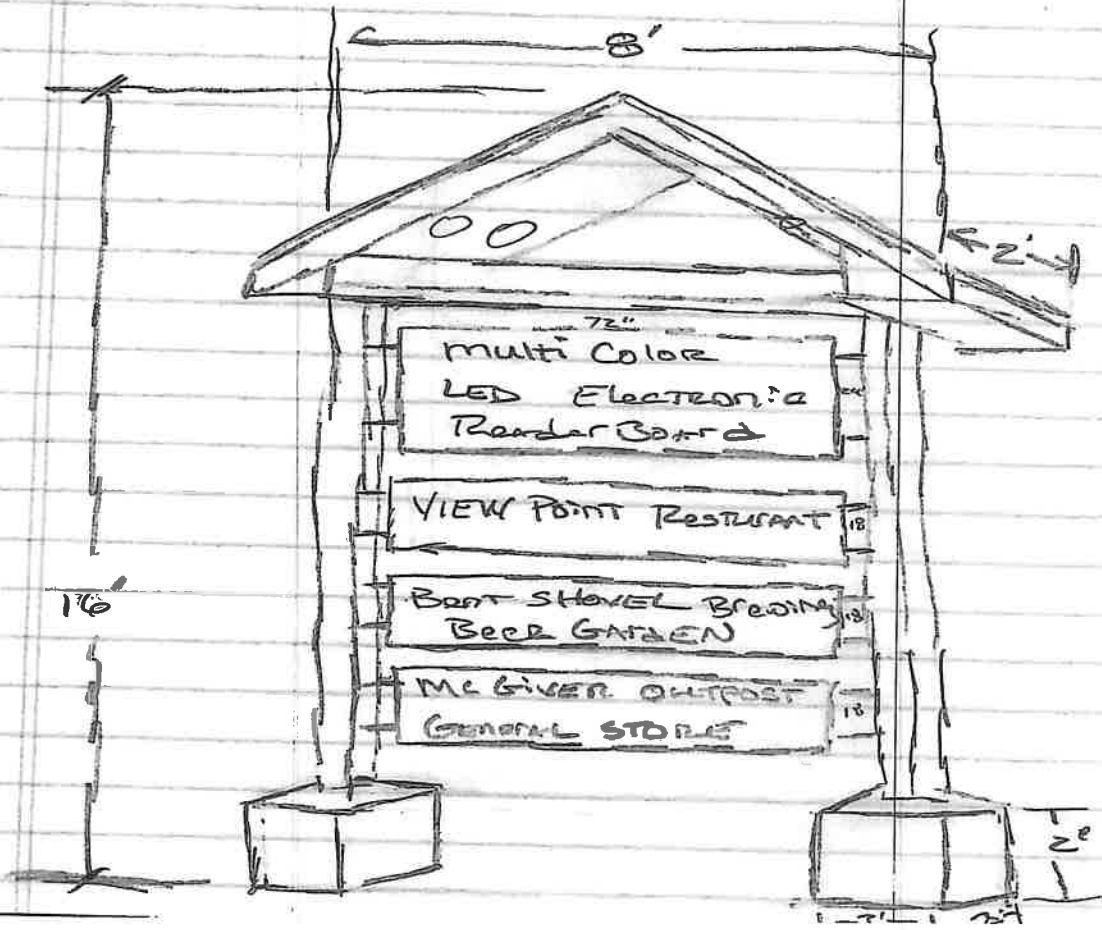 8'
2'
72"
Multi Color
LED Electronic
Reader Board
VIEW POINT RESTURANT
18
BENT SHOVEL Brewing
18
BEER GARDEN
MC GIVER OUTPOST
18
GENERAL STORE
16'